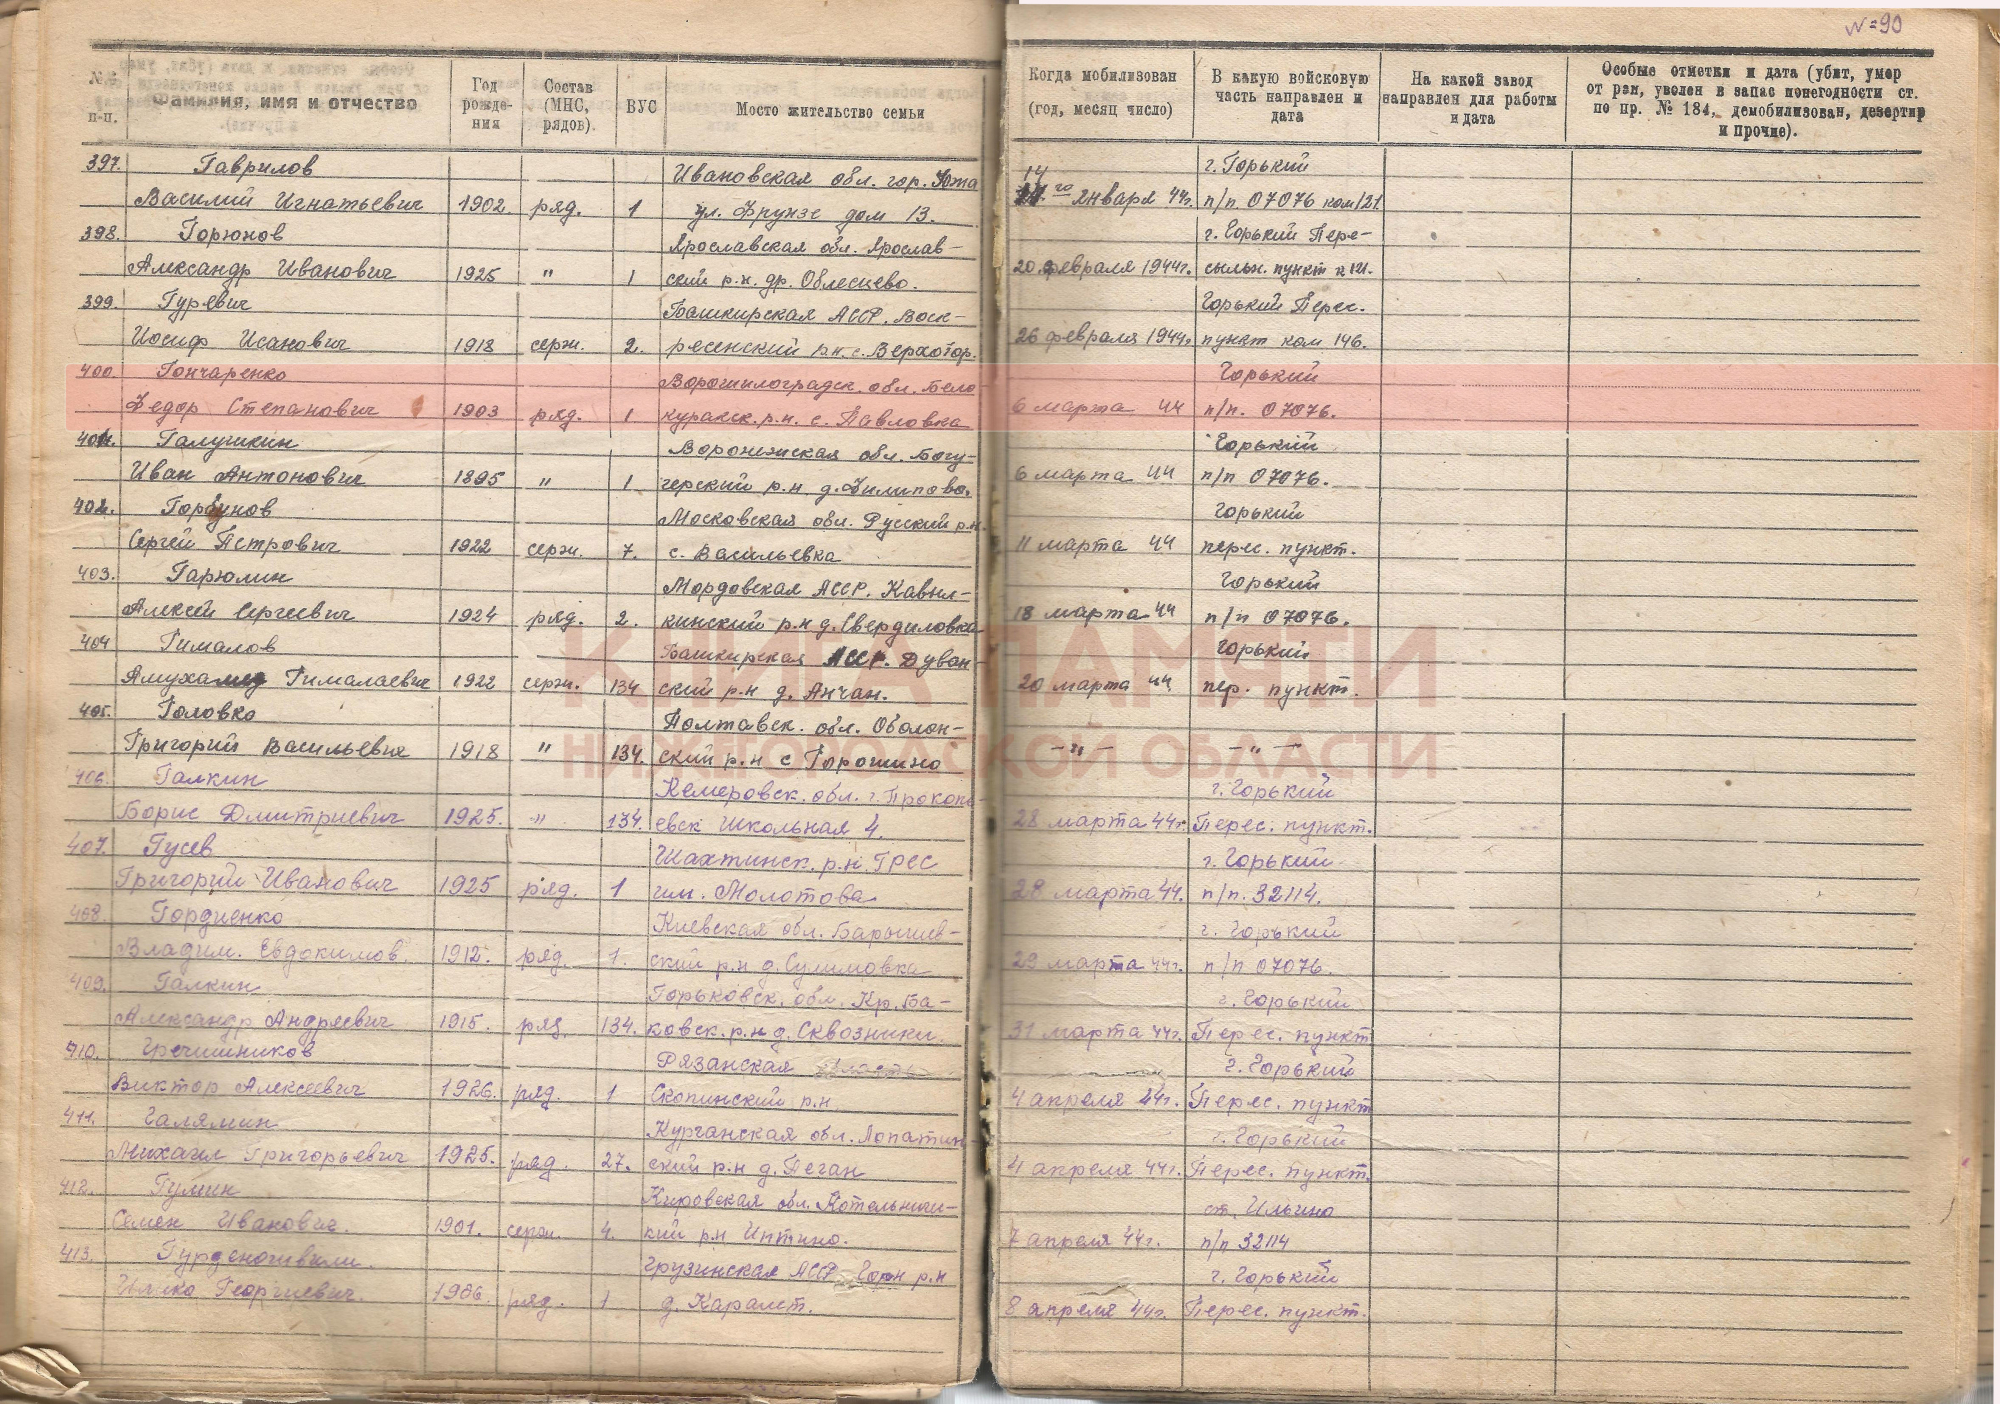 № 90
№№ п-п.
Фамилия, имя и отчество
Год рожде-ния
Состав (МНС, рядов).
ВУС
Мосто жительство семьи
Когда мобилизован (год, месяц число)
В какую войсковую часть направлен и дата
На какой завод направлен для работы и дата
Особые отметки и дата (убит, умер от ран, уволен в запас понегодности ст. по пр. № 184, демобилизован, дезертир и прочие).
397. Гаврилов Ивановская обл. гор. Южа 14 г. Горький
Василий Игнатьевич 1902 ряд. 1 ул. Фрунзе дом 13. го января 44г. п/п. 07076 ком 121.
398. Горюнов Ярославская обл. Ярослав- г. Горький Пере-
Александр Иванович 1925 " 1 ский р.н. др. 20 февраля 1944г. сыльн. пункт к 121.
399. Гуревич Башкирская АССР. Воск- Горький Перес.
Иосиф Исакович 1918 серж. 2. ресенский р.н. с. Верхотор. 26 февраля 1944г. пункт ком 146.
400. Гончаренко Ворошилоградск. обл. Бело- Горький
Федор Степанович 1903 ряд. 1 куракск. р.н. с. Павловка 6 марта 44 п/п. 07076.
401. Галушкин Воронежская обл. Богу- Горький
Иван Антонович 1895 " 1 черский р.н д. Филипово. 6 марта 44 п/п 07076.
402. Горбунов Московская обл. Русский р.н. Горький
Сергей Петрович 1922 серж. 7. с. Васильевка 11 марта 44 перес. пункт.
403. Гарюлин Мордовская АССР. Кавыл- Горький
Алексей Сергеевич 1924 ряд. 2. кинский р.н д. Свердиловка 18 марта 44 п/п 07076.
404 Гималов Башкирская АССР. Дуван- Горький
Гималаевич 1922 серж. 134 ский р.н д. Анчан. 20 марта 44 пер. пункт.
405. Головко Полтавск. обл. Оболон- 
Григорий Васильевич 1918 " 134. ский р.н с Горошино - " - - " -
406. Галкин Кемеровск. обл. г. Прокопь- г. Горький
Борис Дмитриевич 1925. " 134. евск Школьная 4. 28 марта 44г. Перес. пункт.
407. Гусев Шахтинск. р.н. ГРЕС г. Горький
Григорий Иванович 1925 ряд. 1 им. Молотова 28 марта 44. п/п. 32114.
408. Гордиенко Киевская обл. Барышев- г. Горький
Владим. Евдокимов. 1912. ряд. 1. ский р.н д. Сулимовка 29 марта 44г. п/п 07076.
409. Галкин Горьковск. обл. Кр. Ба- г. Горький
Александр Андреевич 1915. ряд. 134. ковск. р.н д. Сквозники. 31 марта 44г. Перес. пункт
410. Гречишников Рязанская область г. Горький
Виктор Алексеевич 1926. ряд. 1 Скопинский р.н 4 апреля 44г. Перес. пункт
411. Галямин Курганская обл. Лопатин- г. Горький
Михаил Григорьевич 1925. ряд. 27. ский р.н д. Пеган 4 апреля 44г. Перес. пункт.
412. Гулин Кировская обл. Котельнич- ст. Ильино
Семен Иванович. 1901. серж. 4. кий р.н 7 апреля 44г. п/п 32114
413. Грузинская АССР Гори р.н г. Горький
Георгиевич. 1906. ряд. 1 д. Каралет. 8 апреля 44г. Перес. пункт.
КНИГА ПАМЯТИ
НИЖЕГОРОДСКОЙ ОБЛАСТИ